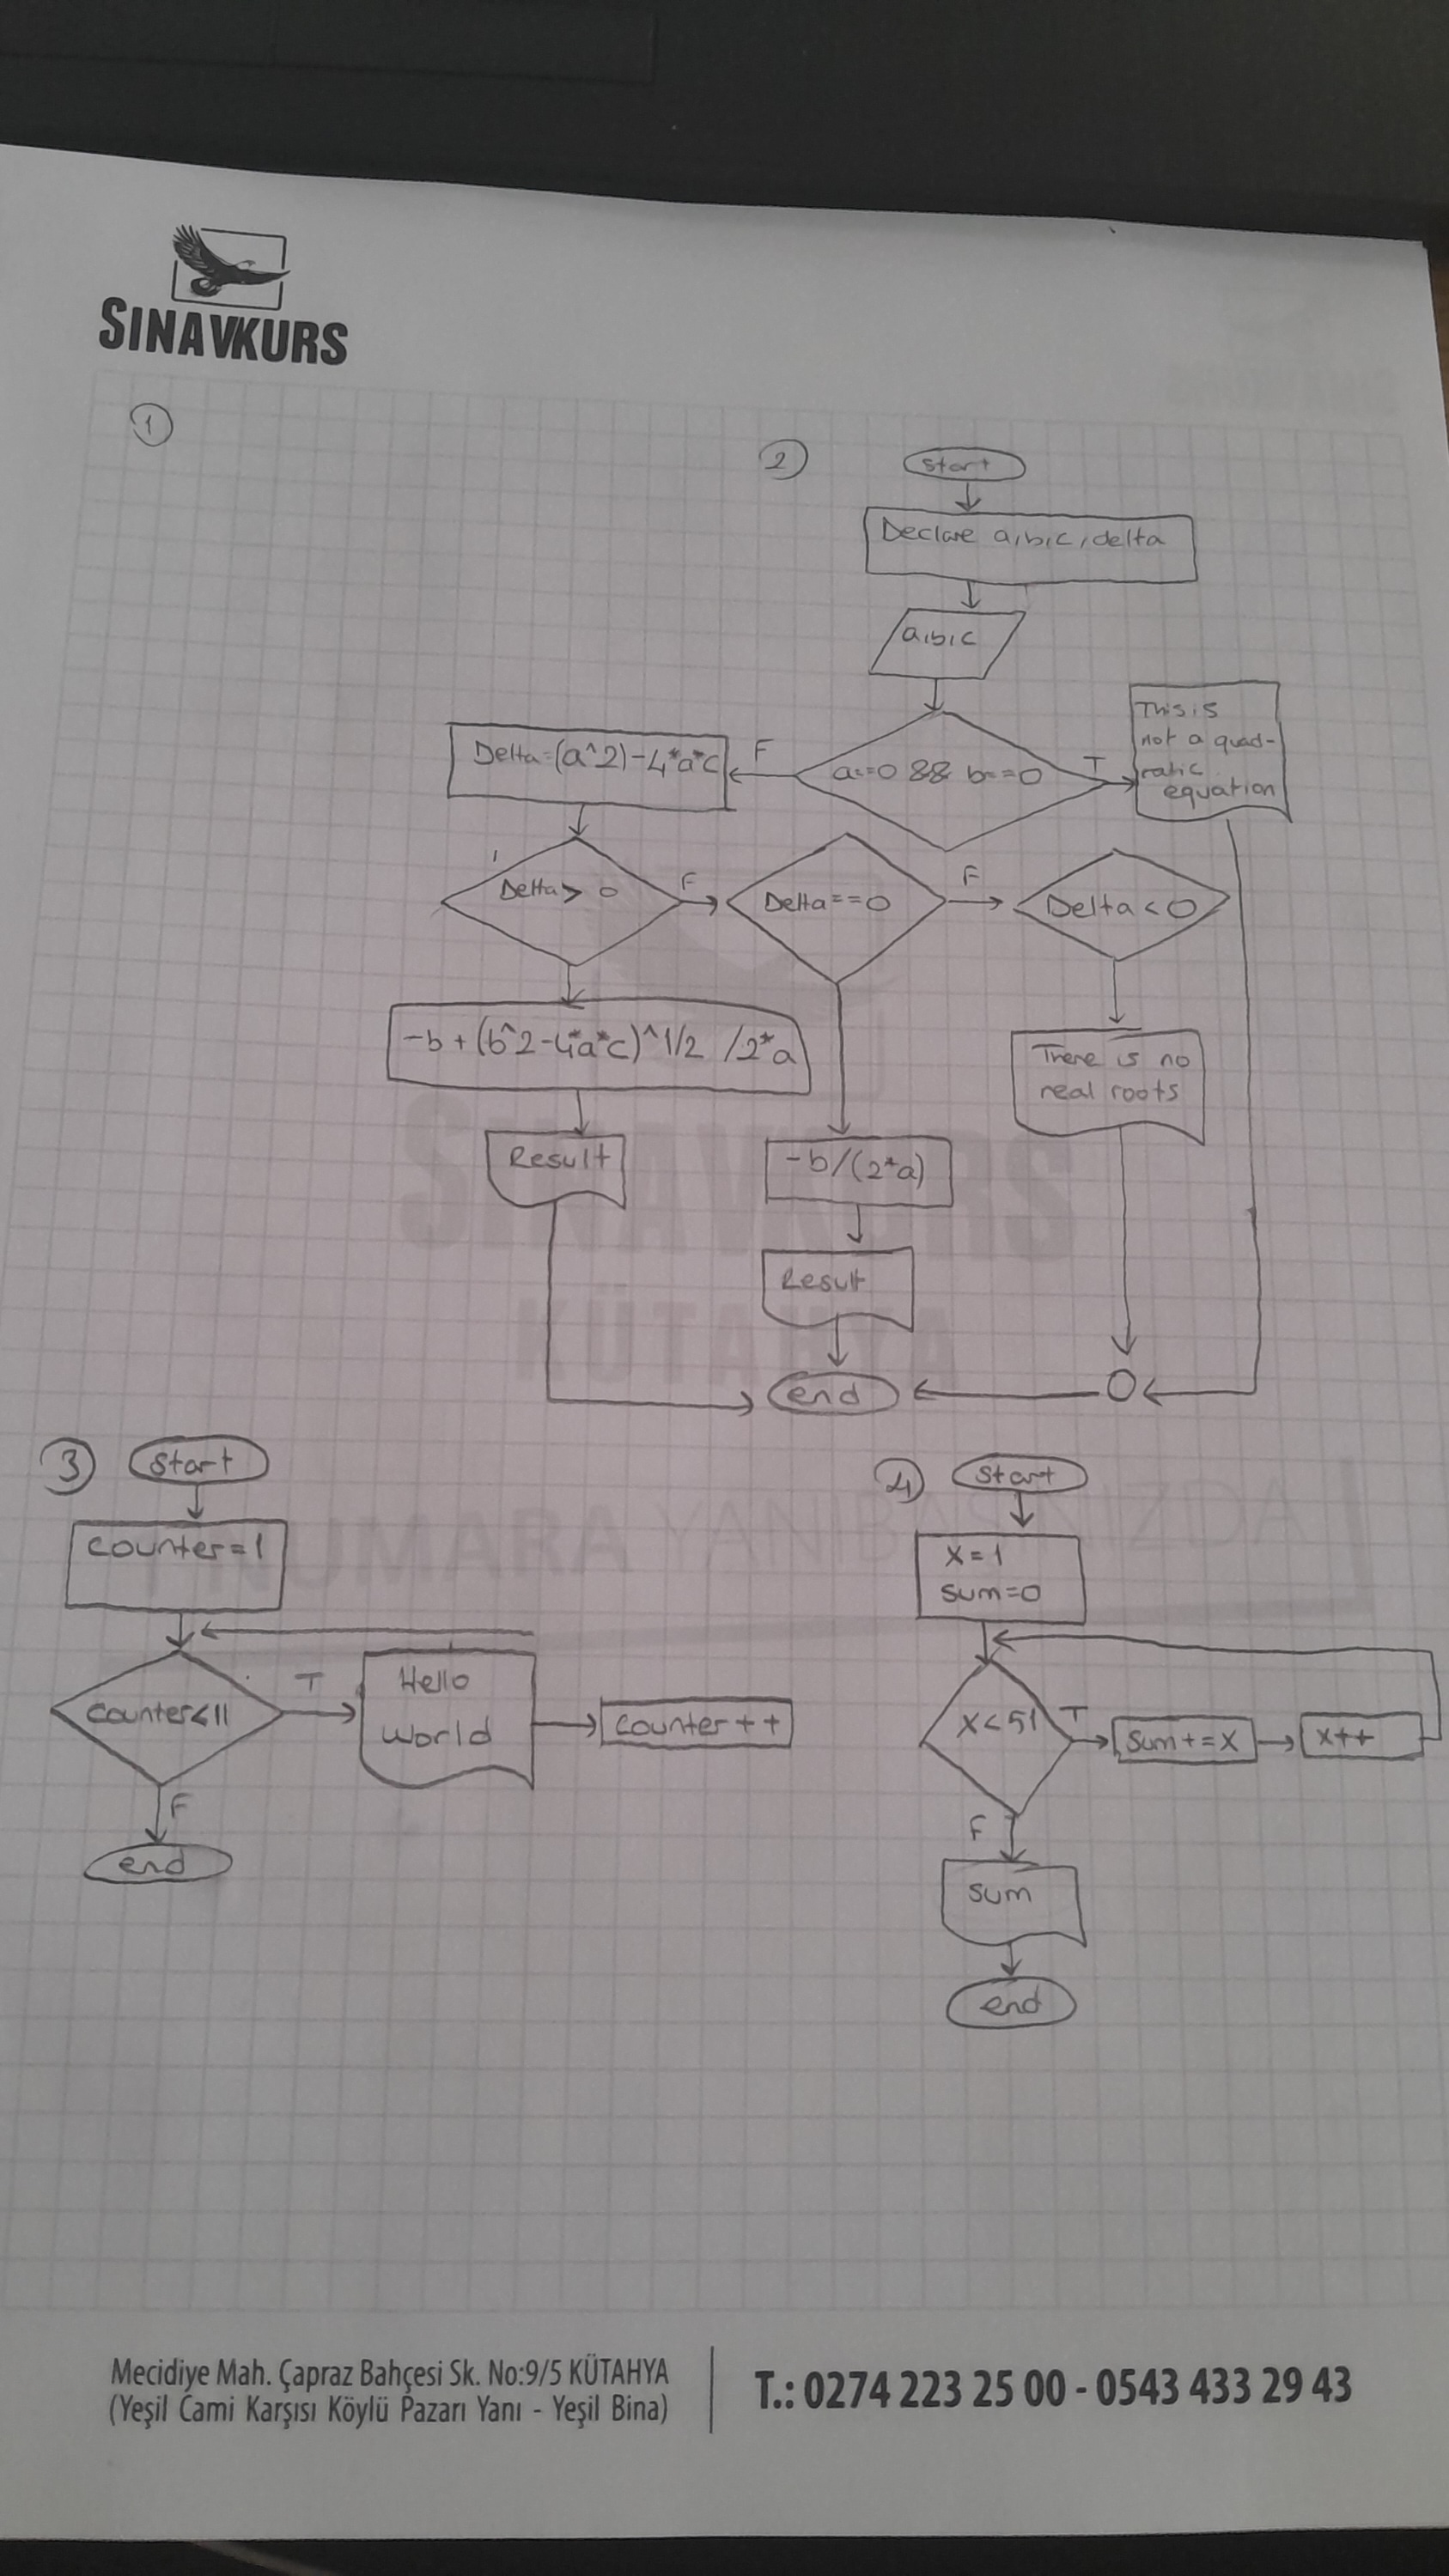 SINAVKURS
1
2
start
Declare a,b,c,delta
a,b,c
a==0 && b==0
T
This is
not a quad-
ratic
equation
F
Delta=(a^2)-4*a*c
Delta > 0
F
Delta==0
F
Delta<0
-b+(b^2-4*a*c)^1/2 /2*a
There is no
real roots
Result
-b/(2*a)
Result
end
SINAVKURS
KÜTAHYA
3
start
counter=1
counter<11
T
Hello
World
counter++
F
end
4
start
x=1
sum=0
x<51
T
sum+=x
x++
F
sum
end
Mecidiye Mah. Çapraz Bahçesi Sk. No:9/5 KÜTAHYA
(Yeşil Cami Karşısı Köylü Pazarı Yanı - Yeşil Bina)
T.: 0274 223 25 00 - 0543 433 29 43